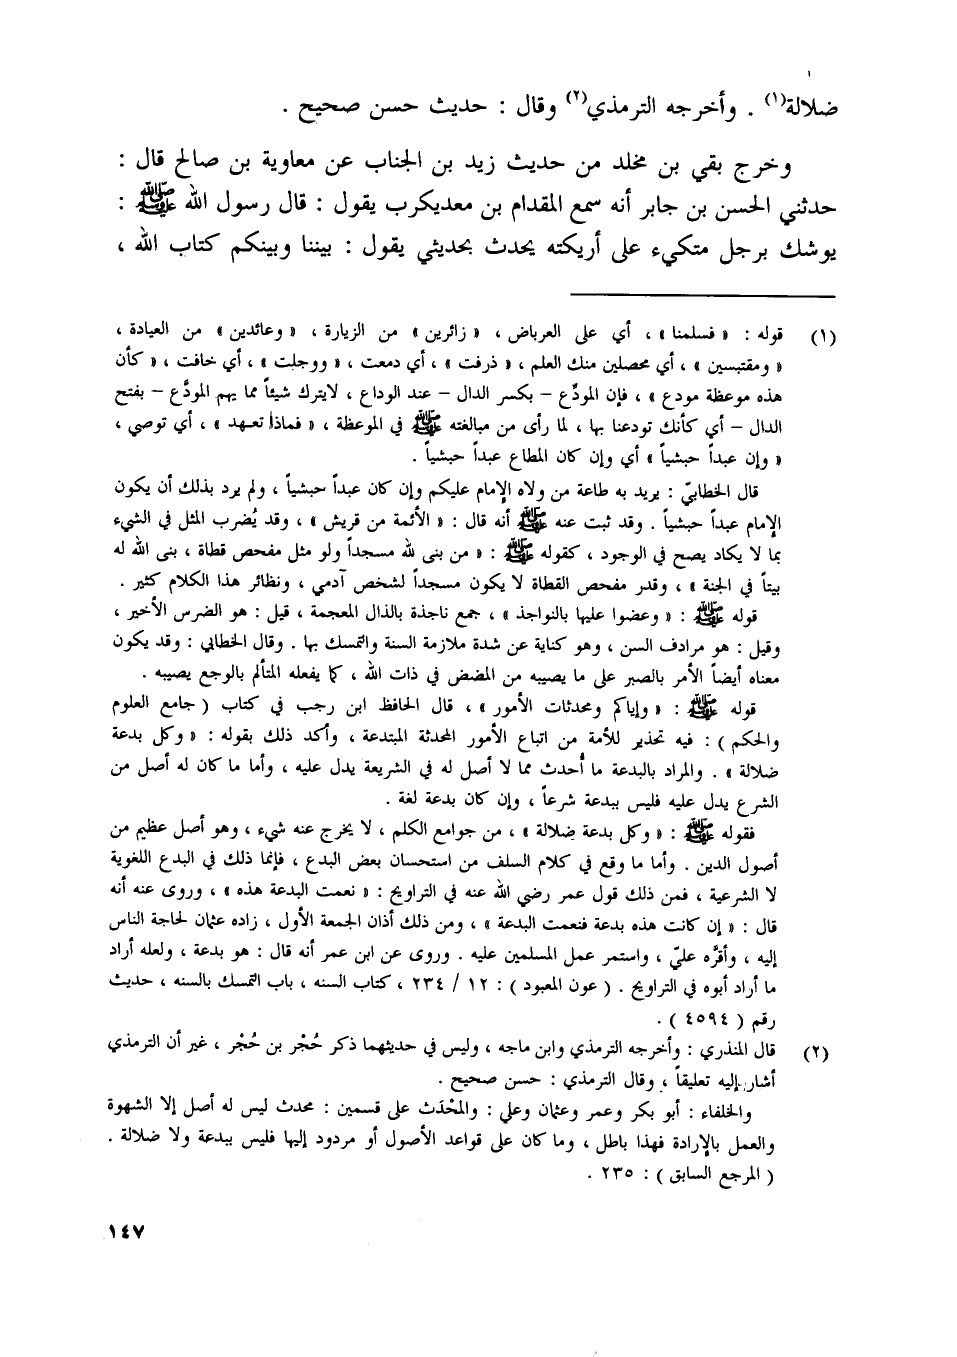 ضلالة(١) . وأخرجه الترمذي(٢) وقال : حديث حسن صحيح .
وخرج بقي بن مخلد من حديث زيد بن الجناب عن معاوية بن صالح قال :
حدثني الحسن بن جابر أنه سمع المقدام بن معديكرب يقول : قال رسول الله ﷺ :
يوشك برجل متكيء على أريكته يحدث بحديثي يقول : بيننا وبينكم كتاب الله ،
(١) قوله : « فسلمنا » ، أي على العرباض ، « زائرين » من الزيارة ، « وعائدين » من العيادة ،
« ومقتبسين » ، أي محصلين منك العلم ، « ذرفت » ، أي دمعت ، « ووجلت » ، أي خافت ، « كأن
هذه موعظة مودع » ، فإن المودِّع – بكسر الدال – عند الوداع ، لايترك شيئاً مما يهم المودَّع – بفتح
الدال – أي كأنك تودعنا بها ، لما رأى من مبالغته ﷺ في الموعظة ، « فماذا تعهد » ، أي توصي ،
« وإن عبداً حبشياً » أي وإن كان المطاع عبداً حبشياً .
قال الخطابيّ : يريد به طاعة من ولاه الإمام عليكم وإن كان عبداً حبشياً ، ولم يرد بذلك أن يكون
الإمام عبداً حبشياً . وقد ثبت عنه ﷺ أنه قال : « الأئمة من قريش » ، وقد يُضرب المثل في الشيء
بما لا يكاد يصح في الوجود ، كقوله ﷺ : « من بنى لله مسجداً ولو مثل مفحص قطاة ، بنى الله له
بيتاً في الجنة » ، وقدر مفحص القطاة لا يكون مسجداً لشخص آدمي ، ونظائر هذا الكلام كثير .
قوله ﷺ : « وعضوا عليها بالنواجذ » ، جمع ناجذة بالذال المعجمة ، قيل : هو الضرس الأخير ،
وقيل : هو مرادف السن ، وهو كناية عن شدة ملازمة السنة والتمسك بها . وقال الخطابي : وقد يكون
معناه أيضاً الأمر بالصبر على ما يصيبه من المضض في ذات الله ، كما يفعله المتألم بالوجع يصيبه .
قوله ﷺ : « وإياكم ومحدثات الأمور » ، قال الحافظ ابن رجب في كتاب ( جامع العلوم
والحكم ) : فيه تحذير للأمة من اتباع الأمور المحدثة المبتدعة ، وأكد ذلك بقوله : « وكل بدعة
ضلالة » . والمراد بالبدعة ما أُحدث مما لا أصل له في الشريعة يدل عليه ، وأما ما كان له أصل من
الشرع يدل عليه فليس ببدعة شرعاً ، وإن كان بدعة لغة .
فقوله ﷺ : « وكل بدعة ضلالة » ، من جوامع الكلم ، لا يخرج عنه شيء ، وهو أصل عظيم من
أصول الدين . وأما ما وقع في كلام السلف من استحسان بعض البدع ، فإنما ذلك في البدع اللغوية
لا الشرعية ، فمن ذلك قول عمر رضي الله عنه في التراويح : « نعمت البدعة هذه » ، وروى عنه أنه
قال : « إن كانت هذه بدعة فنعمت البدعة » ، ومن ذلك أذان الجمعة الأول ، زاده عثمان لحاجة الناس
إليه ، وأقرَّه عليّ ، واستمر عمل المسلمين عليه . وروى عن ابن عمر أنه قال : هو بدعة ، ولعله أراد
ما أراد أبوه في التراويح . ( عون المعبود ) : ١٢ / ٢٣٤ ، كتاب السنه ، باب التمسك بالسنه ، حديث
رقم ( ٤٥٩٤ ) .
(٢) قال المنذري : وأخرجه الترمذي وابن ماجه ، وليس في حديثهما ذكر حُجْر بن حُجْر ، غير أن الترمذي
أشار إليه تعليقاً ، وقال الترمذي : حسن صحيح .
والخلفاء : أبو بكر وعمر وعثمان وعلي : والمحْدَث على قسمين : محدث ليس له أصل إلا الشهوة
والعمل بالإرادة فهذا باطل ، وما كان على قواعد الأصول أو مردود إليها فليس ببدعة ولا ضلالة .
( المرجع السابق ) : ٢٣٥ .
١٤٧